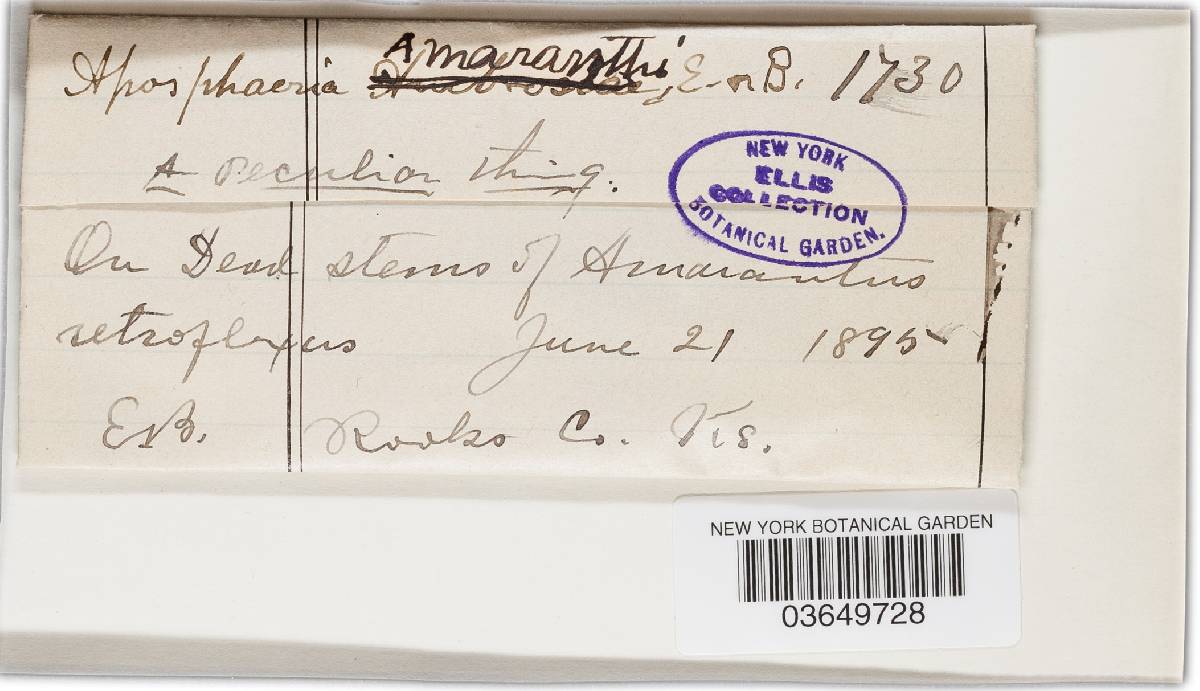 Aposphaeria Amaranthi, E. & B. 1730
A peculiar thing.
NEW YORK
ELLIS
COLLECTION
BOTANICAL GARDEN.
On Dead stems of Amarantus
retroflexus June 21 1895
E.B. Rooks Co. Ks.
NEW YORK BOTANICAL GARDEN
03649728